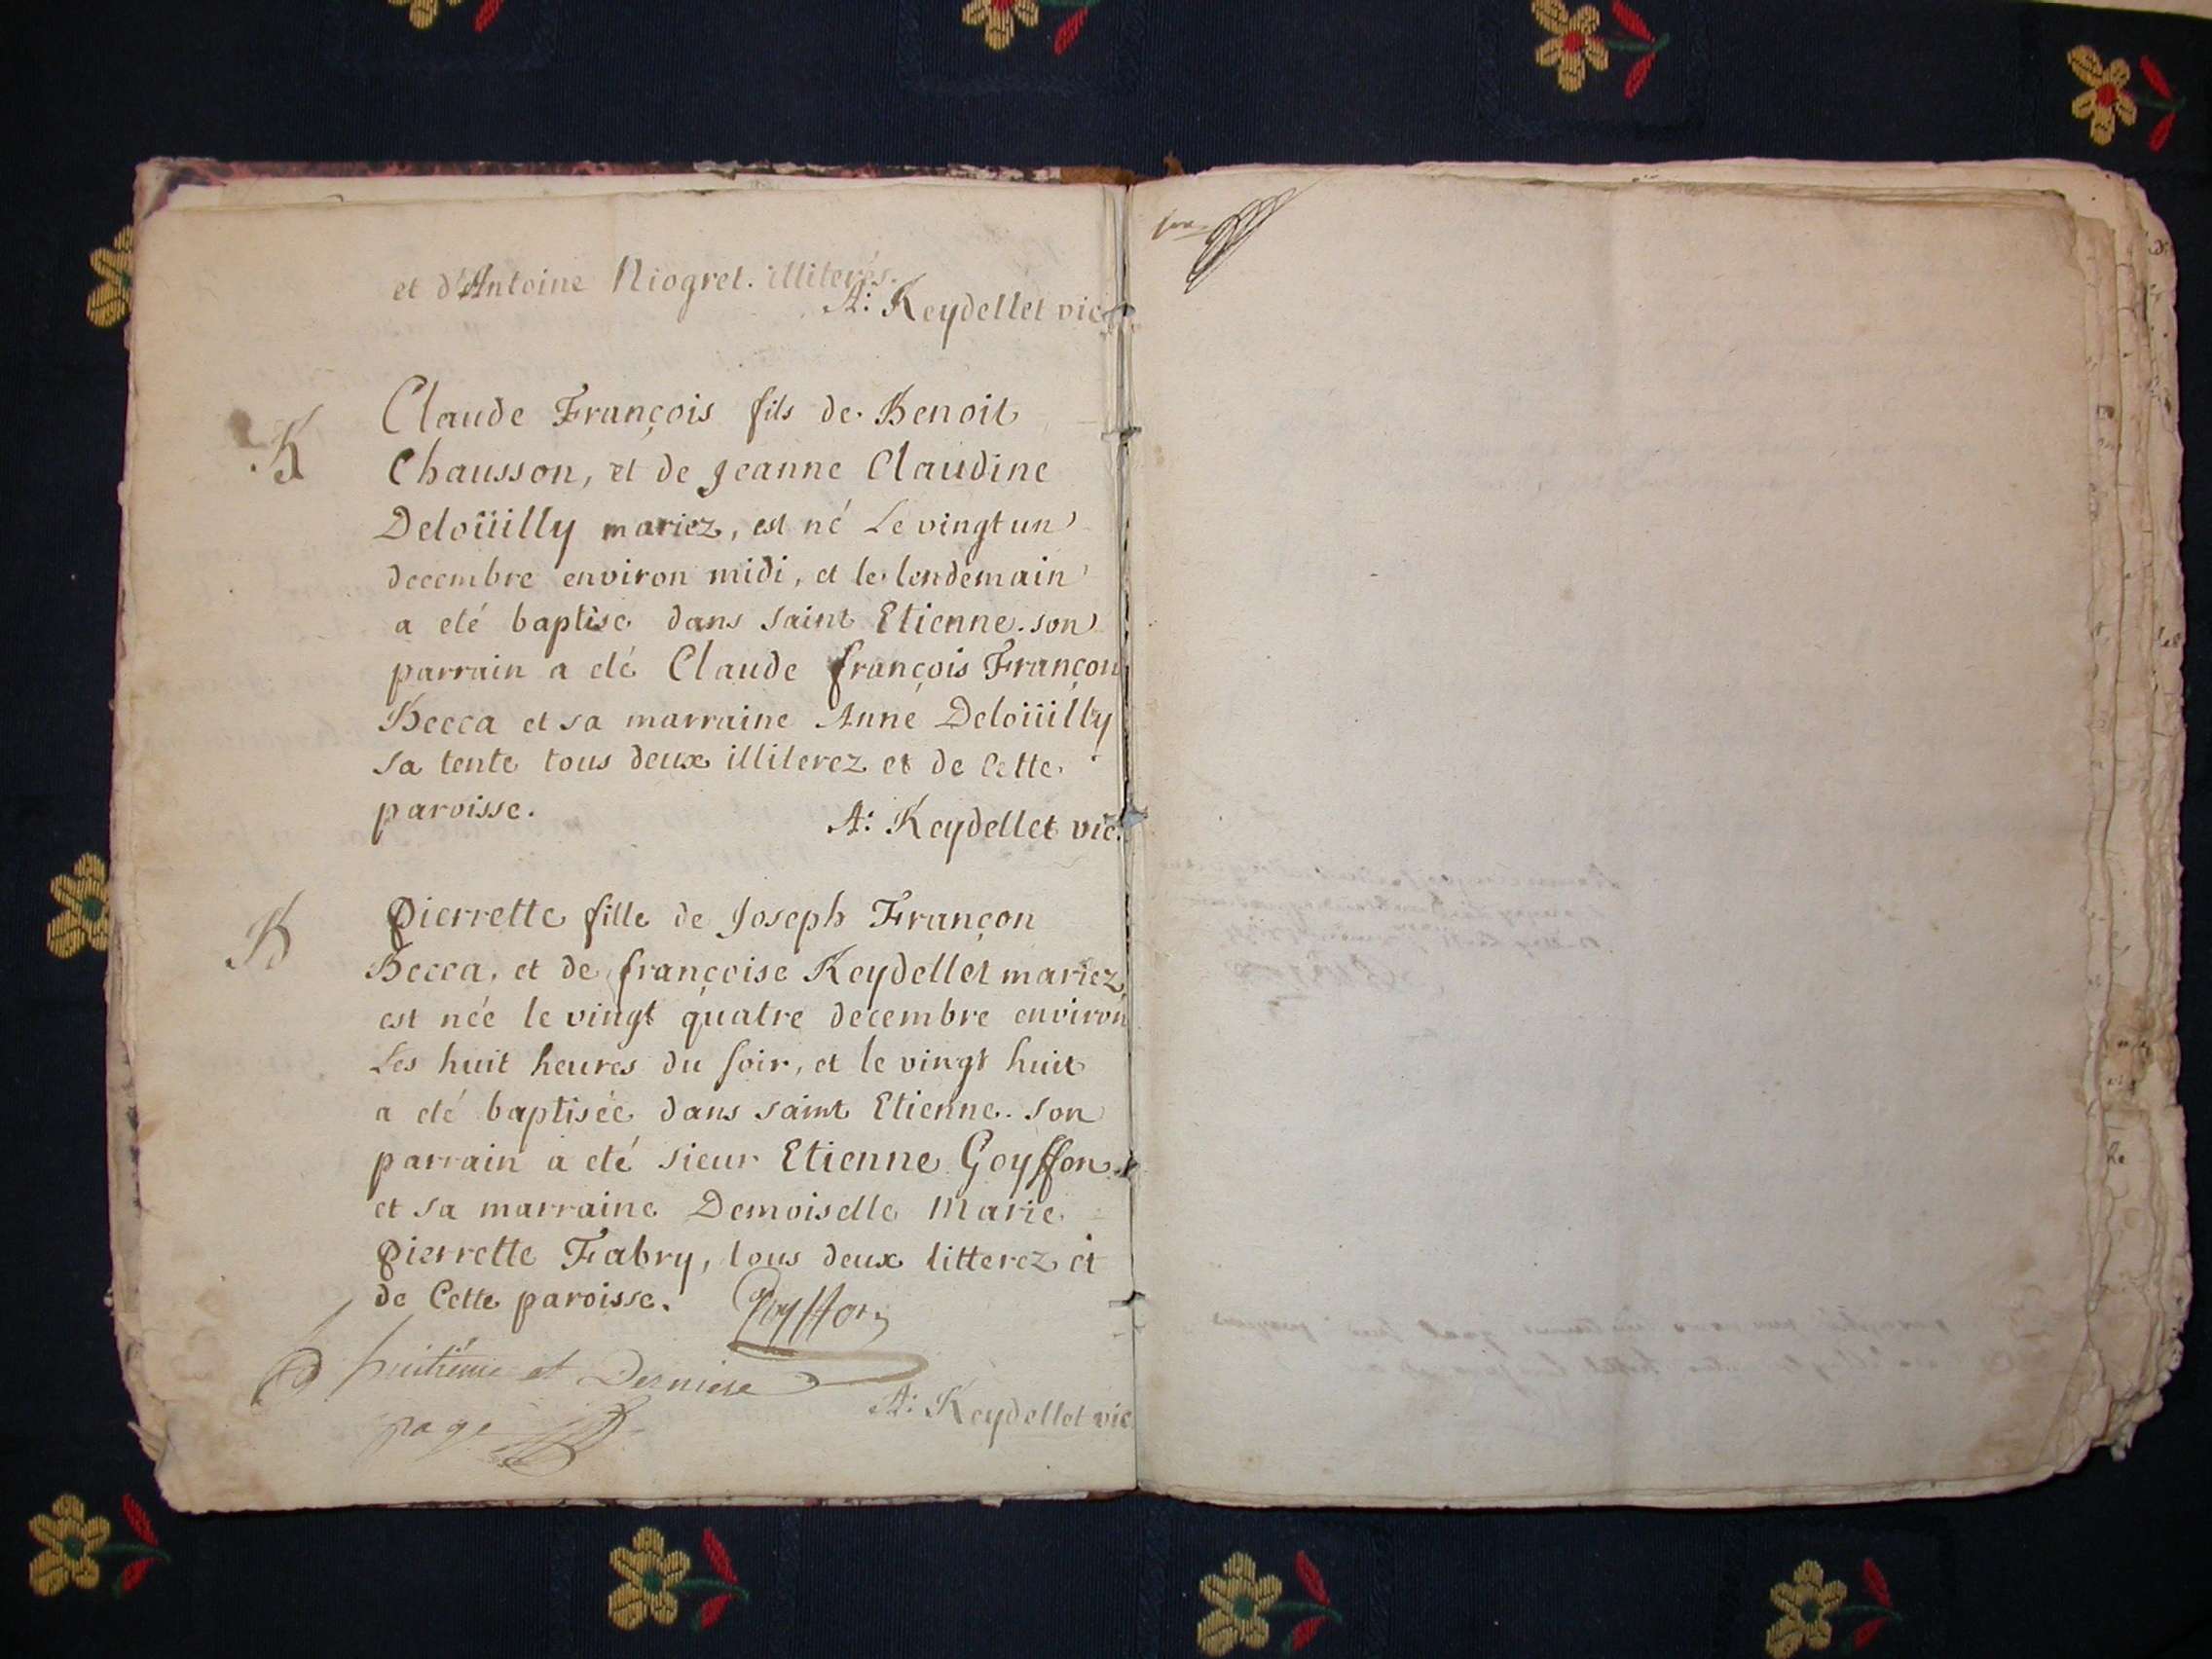 et d'Antoine Niogret. illiterés.
A: Reydellet vic
B
Claude François fils de Benoit
Chausson, et de Jeanne Claudine
Deloüilly mariez, est né Le vingt un
decembre environ midi, et le lendemain
a eté baptisé dans saint Etienne. son
parrain a eté Claude françois Françon
Becca et sa marraine Anne Deloüilly
sa tente tous deux illiterez et de cette
paroisse.
A: Reydellet vic.
B
Pierrette fille de Joseph Françon
Becca, et de françoise Reydellet mariez,
est née le vingt quatre decembre environ
Les huit heures du soir, et le vingt huit
a eté baptisée dans saint Etienne. son
parrain a eté sieur Etienne Goyffon
et sa marraine Demoiselle Marie
Pierrette Fabry, tous deux litterez et
de Cette paroisse.
Goyffon
huitième et Derniere
page
A: Reydellet vic